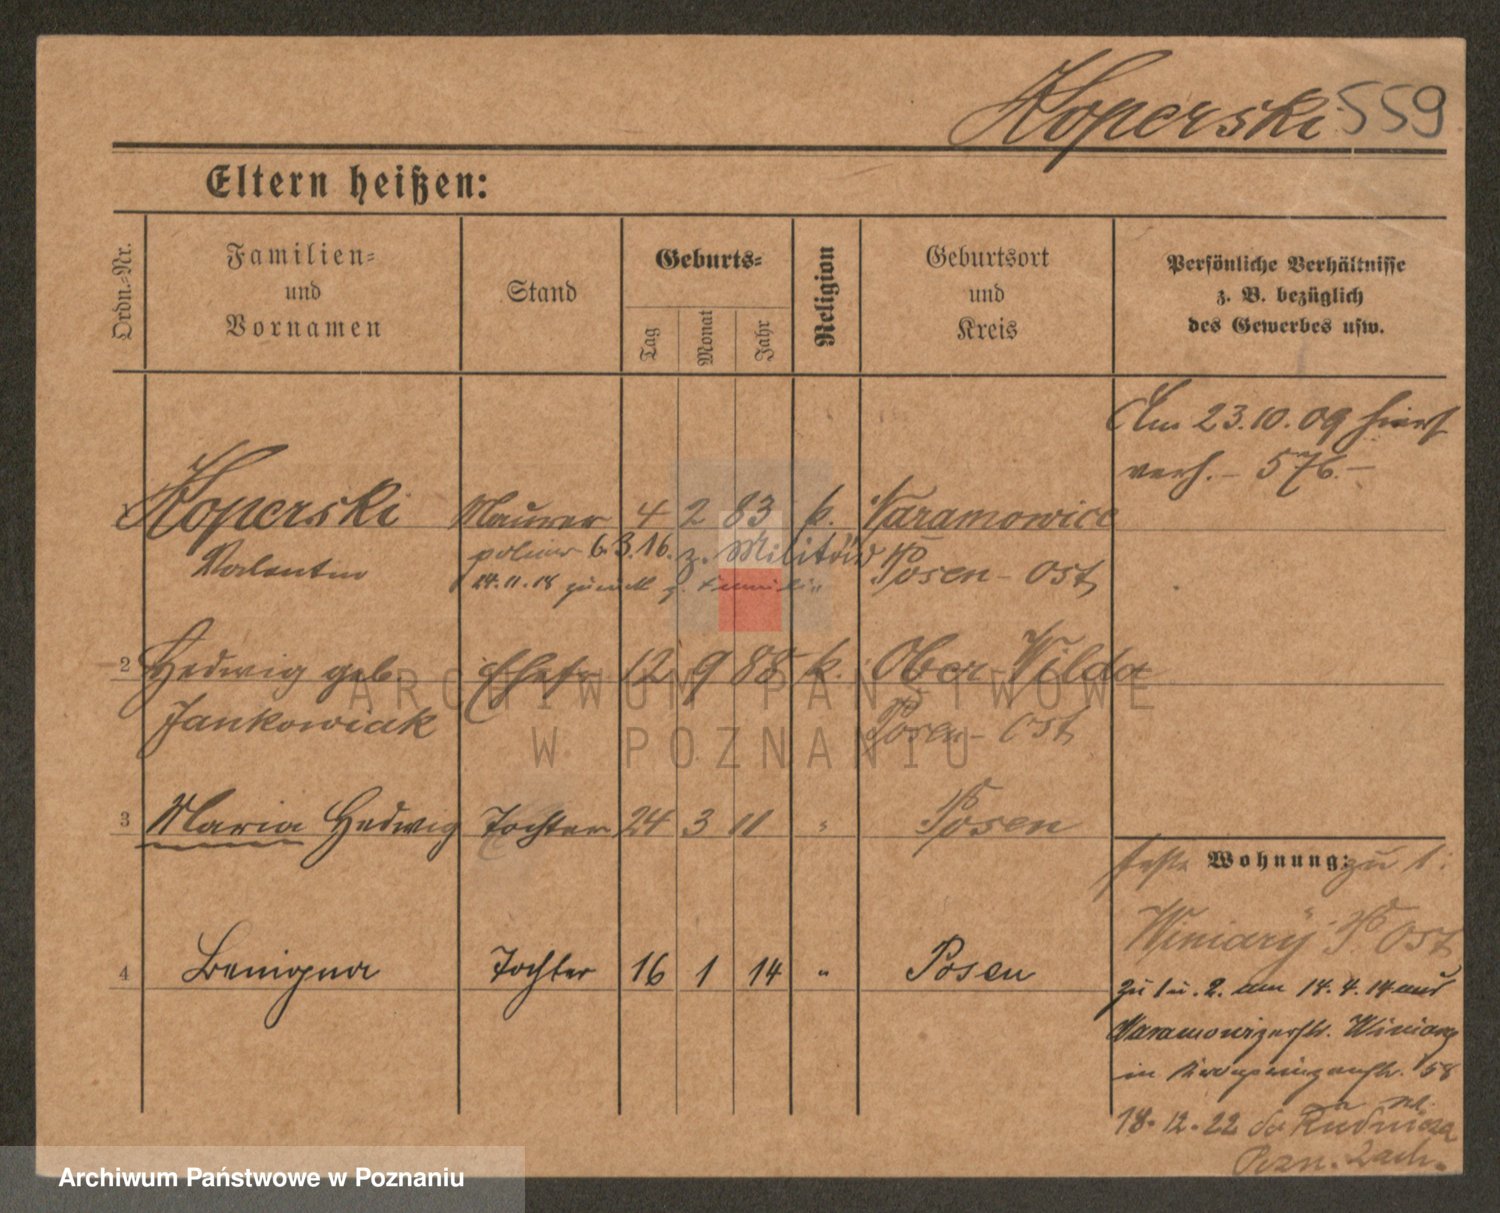 Koperski 559
Eltern heißen:
Ordn.-Nr.
Familien-
und
Vornamen
Stand
Geburts-
Tag
Monat
Jahr
Religion
Geburtsort
und
Kreis
Persönliche Verhältnisse
z. B. bezüglich
des Gewerbes usw.
Am 23.10.09 hier
verh. – 576. –
1 Koperski Maurer 4 2 83 k. Naramowice
Valentin 6.3.16. z. Militär Posen-Ost
24.11.18 zurück z. Familie
2 Hedwig geb. Ehefr. 12 9 88 k. Ober-Wilda
Jankowiak Posen-Ost
3 Maria Hedwig Tochter 24 3 11 " Posen
Wohnung: zu 1:
Winiary P. Ost
4 Benigna Tochter 16 1 14 " Posen
zu 1 u. 2. am 14. 4. 14 aus
Naramowizerstr. Winiary
in 58
18.12.22 do Rudnicza
Pozn. Zach.
ARCHIWUM PAŃSTWOWE
W POZNANIU
Archiwum Państwowe w Poznaniu